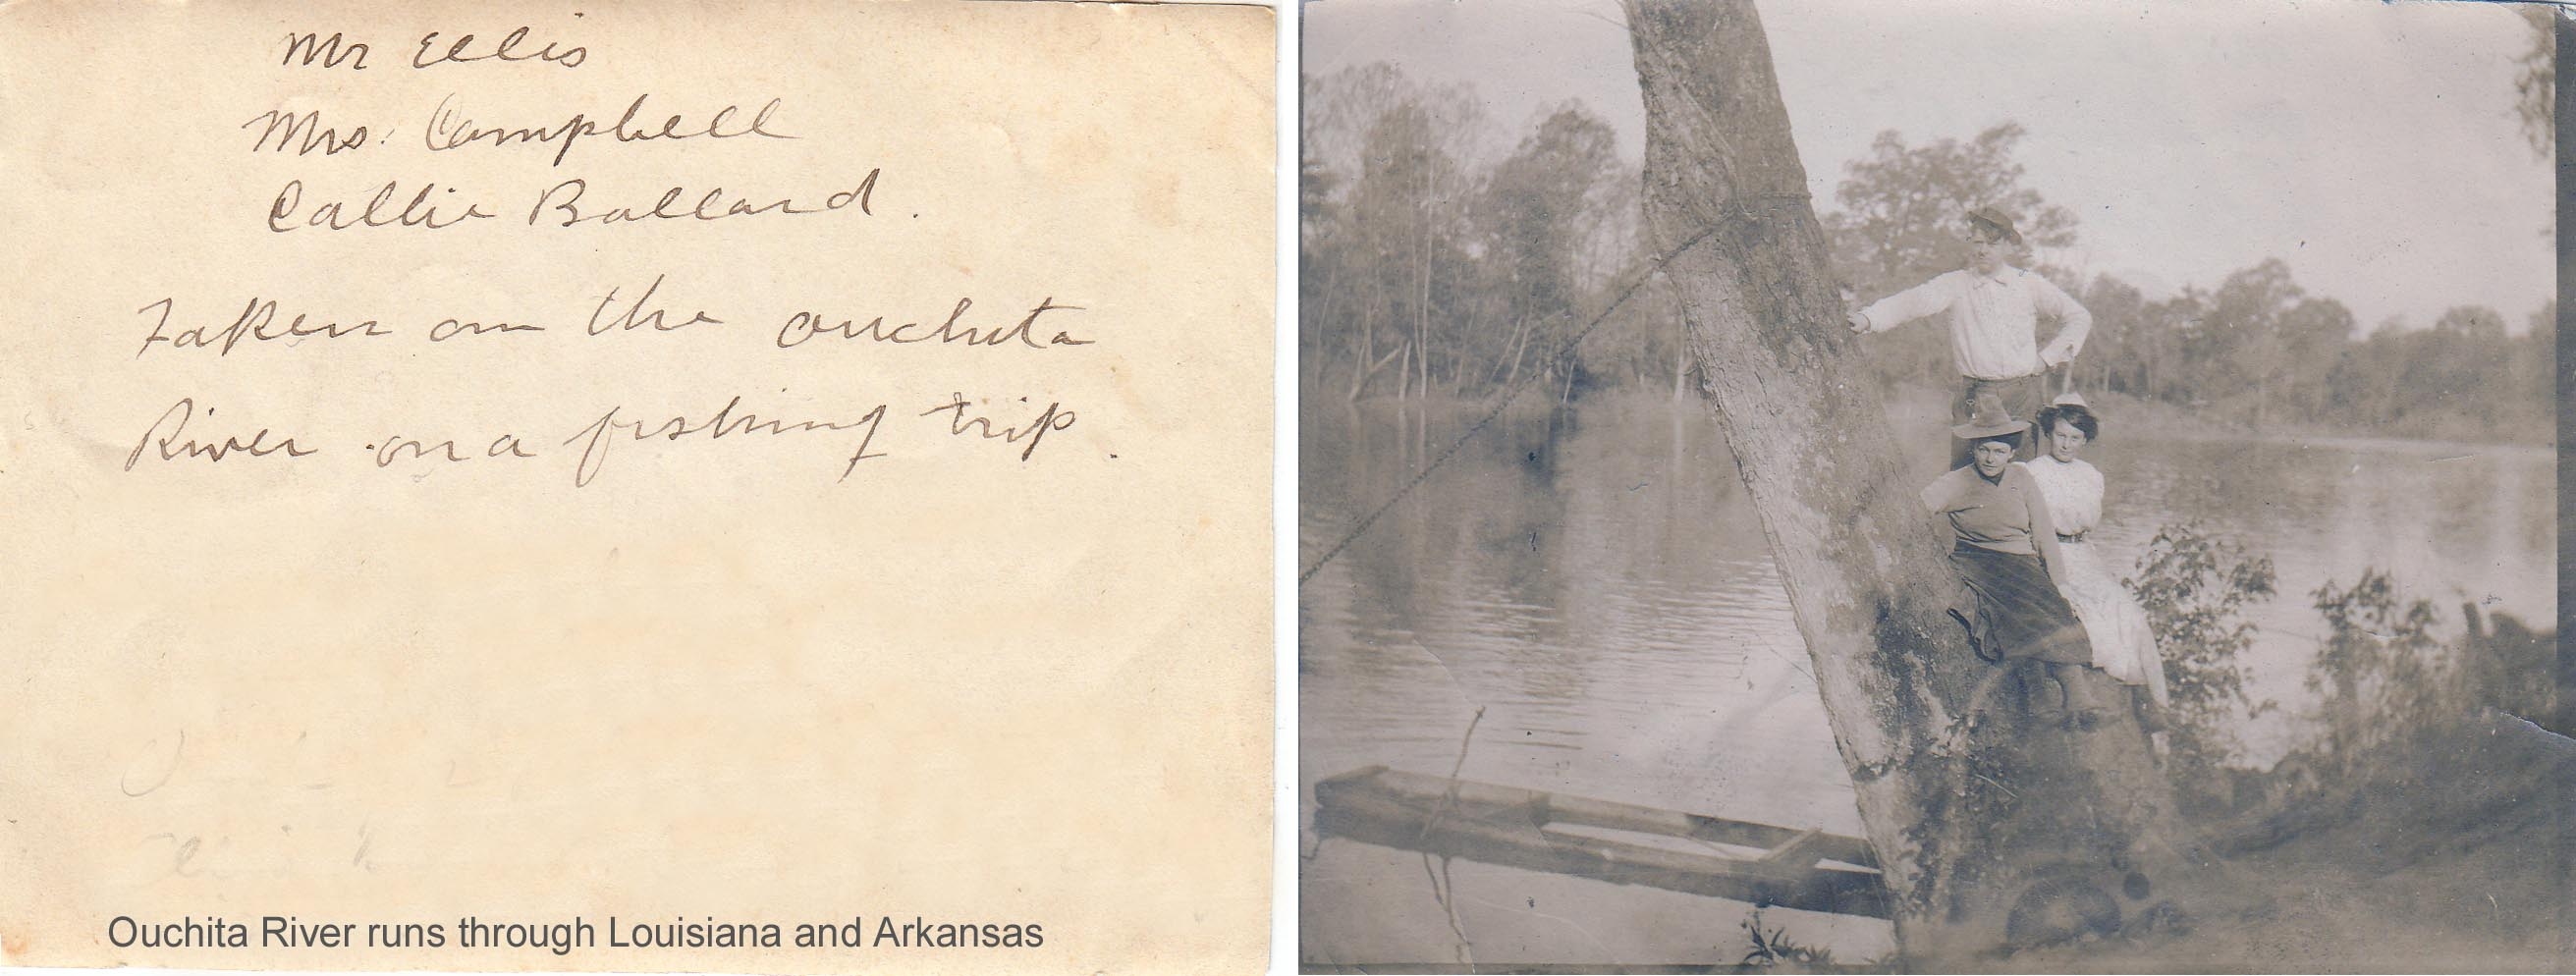 Mr Ellis
Mrs. Campbell
Callie Ballard.
Taken on the ouchita
River on a fishing trip.
Ouchita River runs through Louisiana and Arkansas